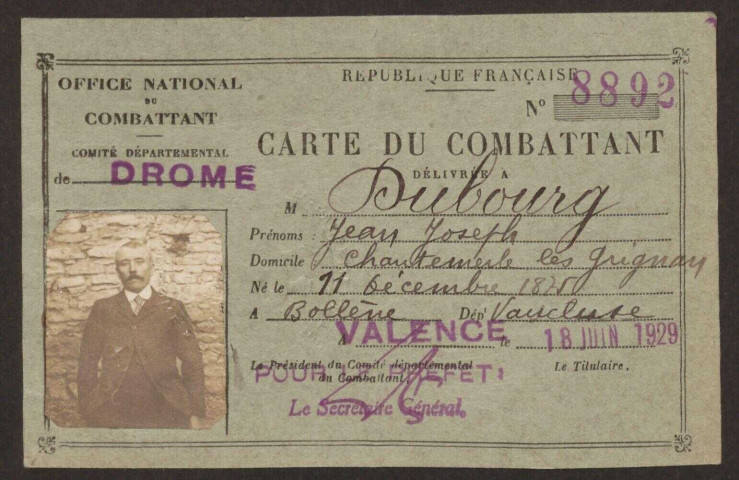 OFFICE NATIONAL
DU
COMBATTANT
COMITÉ DÉPARTEMENTAL
de DROME
REPUBLIQUE FRANÇAISE
N° 8892
CARTE DU COMBATTANT
DÉLIVRÉE A
M Dubourg
Prénoms : Jean Joseph
Domicile Chantemerle les Grignan
Né le 11 décembre
A Bollène Dép' Vaucluse
A VALENCE le 18 JUIN 1929
Le Président du Comité départemental
du Combattant.
Le Titulaire.
POUR LE PREFET:
Le Secrétaire Général.